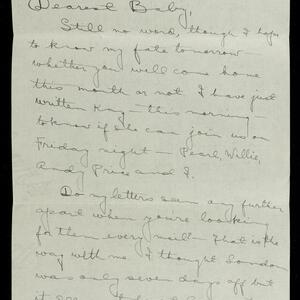 Dearest Baby,
Still no word, though I hope
to know my fate tomorrow -
whether you will come home
this month or not. I have just
written Kay - this morning -
to know if she can join us on
Friday night - Pearl, Willie,
Andy Price and I.
Do my letters seem any further
apart when you're looking
for them every mail - That is the
way with me. I thought London
was only seven days off but
it